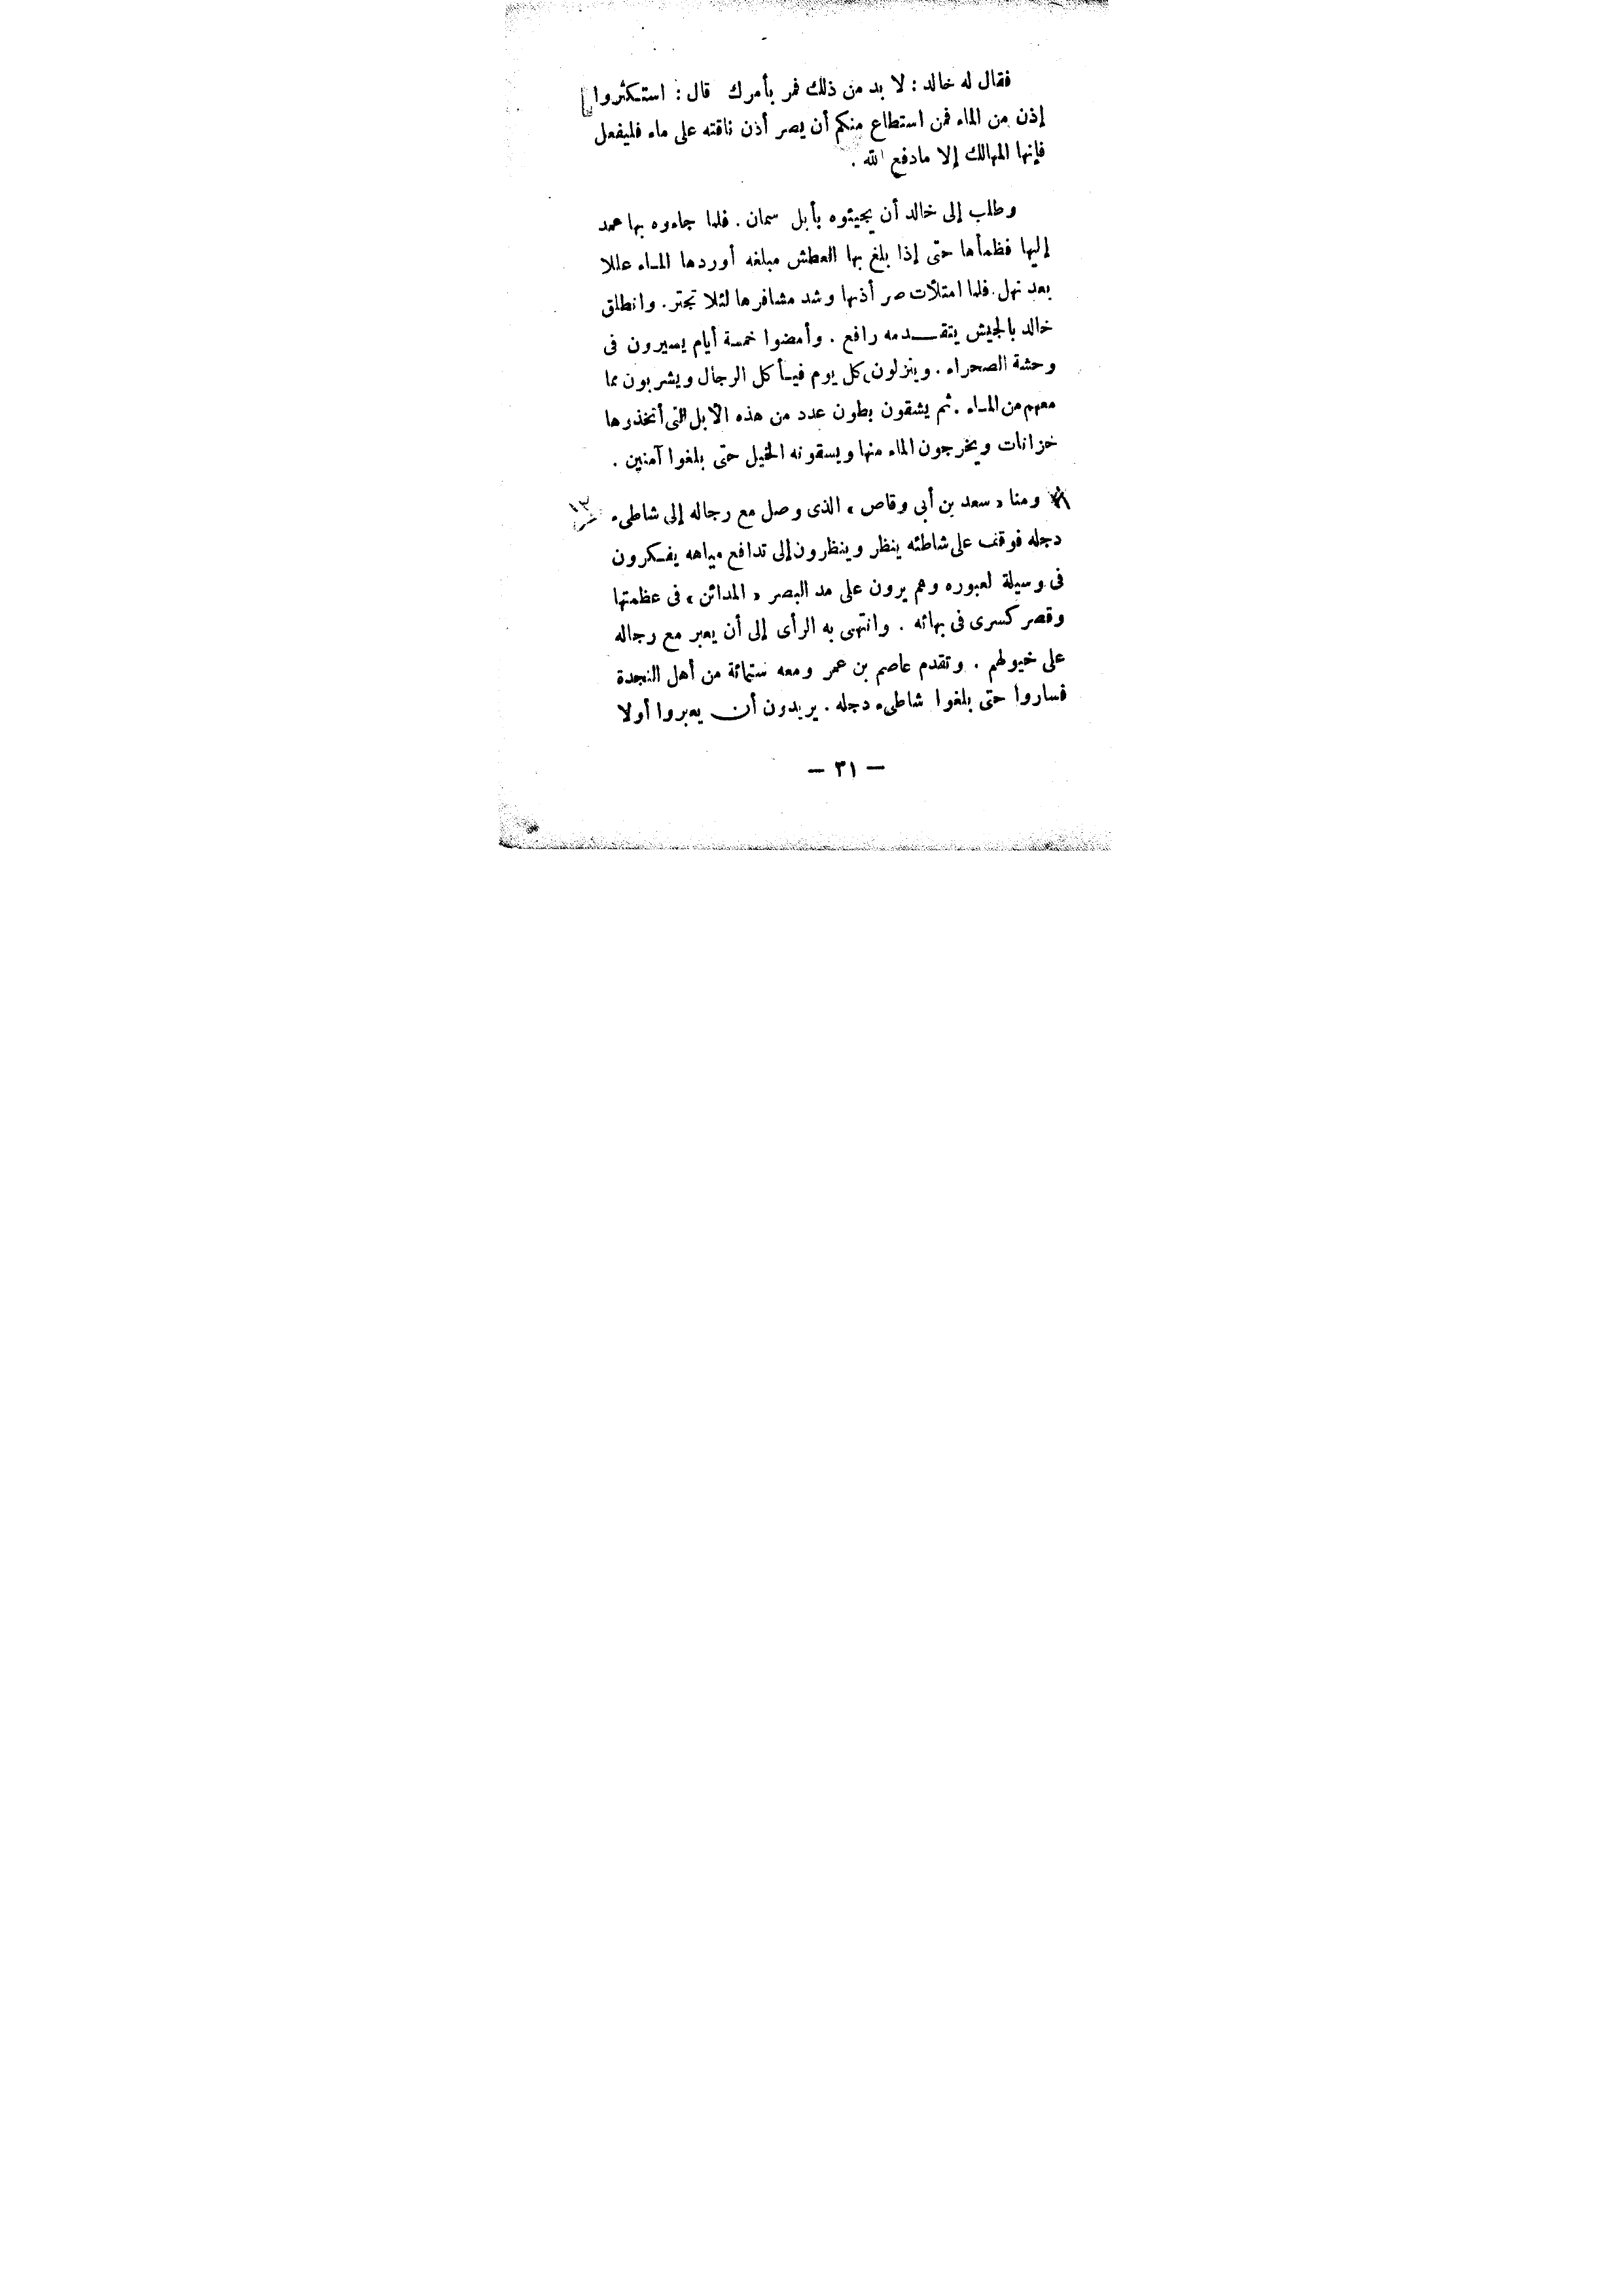 فقال له خالد : لا بد من ذلك فمر بأمرك قال : استكثروا
إذن من الماء فمن استطاع منكم أن يصر أذن ناقته على ماء فليفعل
فإنها المهالك إلا مادفع الله .
وطلب إلى خالد أن يجيئوه بأبل سمان . فلما جاءوه بها عمد
إليها فظمأها حتى إذا بلغ بها العطش مبلغه أوردها الماء عللا
بعد نهل . فلما امتلأت صر أذنها وشد مشافرها لئلا تجتر . وانطلق
خالد بالجيش يتقدمه رافع . وأمضوا خمسة أيام يسيرون فى
وحشة الصحراء . وينزلون كل يوم فيأكل الرجال ويشربون مما
معهم من الماء . ثم يشقون بطون عدد من هذه الأبل التى أتخذوها
خزانات ويخرجون الماء منها ويسقونه الخيل حتى بلغوا آمنين .
ومنا « سعد بن أبى وقاص » الذى وصل مع رجاله إلى شاطىء
دجله فوقف على شاطئه ينظر وينظرون إلى تدافع مياهه يفكرون
فى وسيلة لعبوره وهم يرون على مد البصر « المدائن » فى عظمتها
وقصر كسرى فى بهائه . وانتهى به الرأى إلى أن يعبر مع رجاله
على خيولهم . وتقدم عاصم بن عمر ومعه ستمائة من أهل النجدة
فساروا حتى بلغوا شاطىء دجله . يريدون أن يعبروا أولا
— ٣١ —